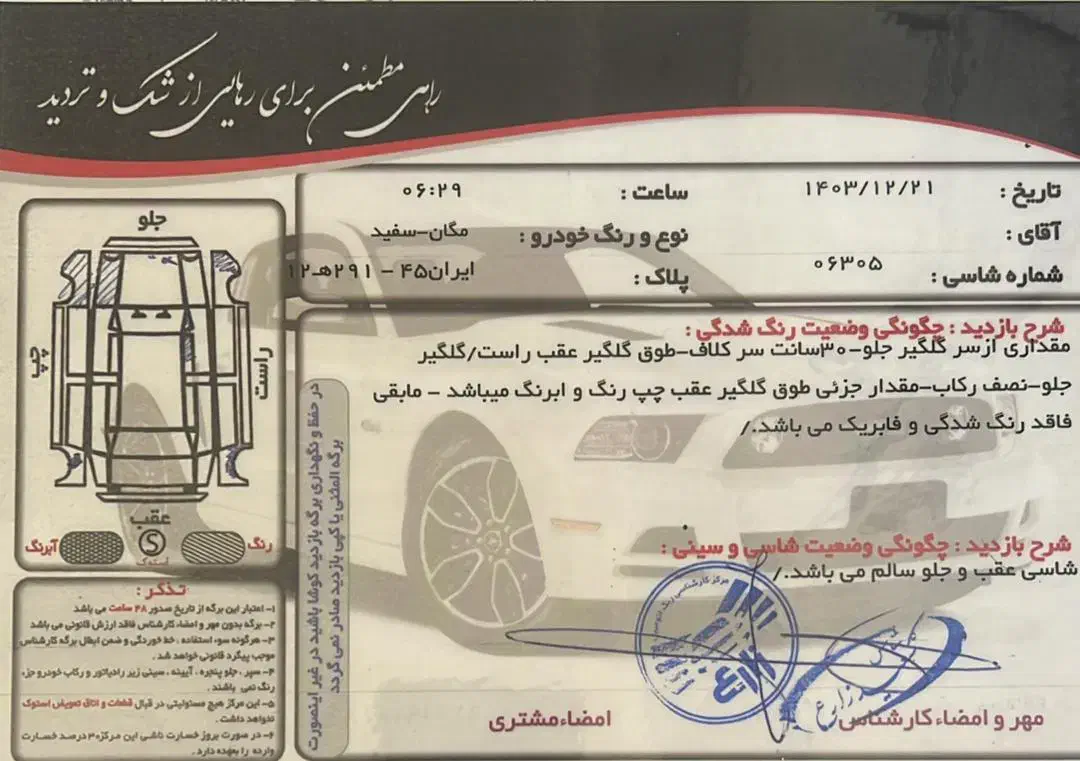 راهی مطمئن برای رهایی از شک و تردید
تاریخ : ۱۴۰۳/۱۲/۲۱
ساعت : ۰۶:۲۹
آقای :
نوع و رنگ خودرو : مگان-سفید
شماره شاسی : ۰۶۳۰۵
پلاک : ایران۴۵ - ۲۹۱هـ۱۲
شرح بازدید : چگونگی وضعیت رنگ شدگی :
مقداری ازسر گلگیر جلو-۳۰سانت سر کلاف-طوق گلگیر عقب راست/گلگیر
جلو-نصف رکاب-مقدار جزئی طوق گلگیر عقب چپ رنگ و ابرنگ میباشد - مابقی
فاقد رنگ شدگی و فابریک می باشد./
شرح بازدید : چگونگی وضعیت شاسی و سینی :
شاسی عقب و جلو سالم می باشد./
مهر و امضاء کارشناس
امضاء مشتری
مرکز کارشناسی رنگ
زارع
در حفظ و نگهداری برگه بازدید کوشا باشید در غیر اینصورت
برگه المثنی یا کپی بازدید صادر نمی گردد
جلو
چپ
راست
عقب
رنگ
S
استوک
آبرنگ
تذکر :
۱- اعتبار این برگه از تاریخ صدور ۴۸ ساعت می باشد
۲- برگه بدون مهر و امضاء کارشناس فاقد ارزش قانونی می باشد
۳- هرگونه سوء استفاده ، خط خوردگی و ضمن ابطال برگه کارشناس
موجب پیگرد قانونی خواهد شد .
۴- سپر ، جلو پنجره ، آیینه ، سینی زیر رادیاتور و رکاب خودرو جزء
رنگ نمی باشند .
۵- این مرکز هیچ مسئولیتی در قبال قطعات و اتاق تعویض استوک
نخواهد داشت .
۶- در صورت بروز خسارت ناشی این مرکز ۳۰ درصد خسارت
وارده را بعهده دارد .